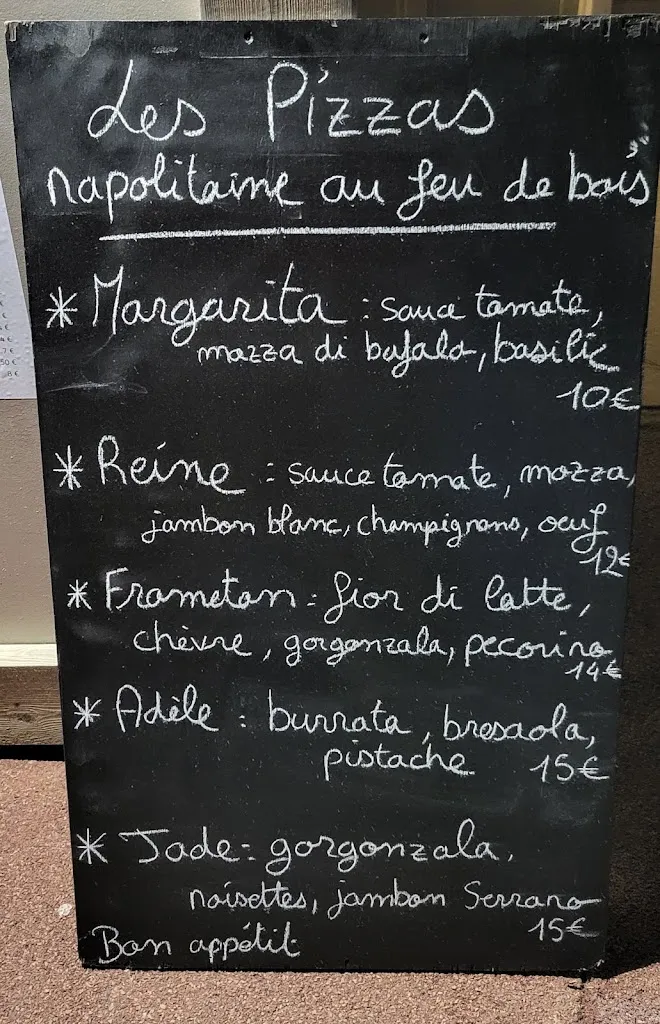 Les Pizzas
napolitaine au feu de bois
* Margarita : sauce tomate,
mozza di bufala, basilic
10€
* Reine : sauce tomate, mozza,
jambon blanc, champignons, oeuf
12€
* Frometon : fior di latte,
chèvre, gorgonzala, pecorino
14€
* Adèle : burrata, bresaola,
pistache 15€
* Jade : gorgonzala,
noisettes, jambon Serrano
15€
Bon appétit